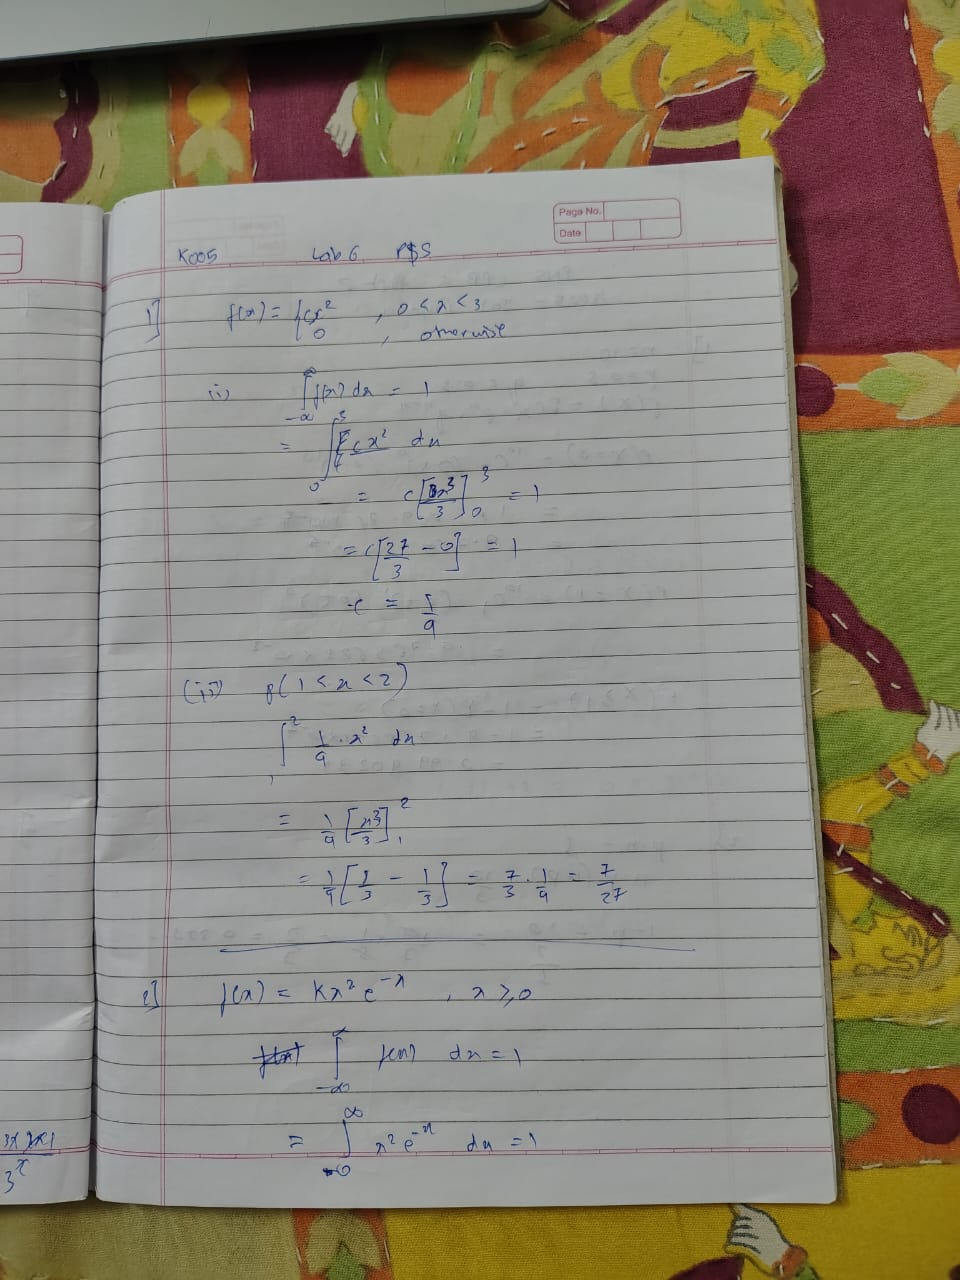 Page No.
Date
K005 Lab 6 P$S
1] f(x) = { cx² , 0 < x < 3
0 , otherwise
(i) ∫_{-∞}^{∞} f(x) dx = 1
= ∫_0^3 cx² dx
= c[x³/3]_0^3 = 1
= c[27/3 - 0] = 1
c = 1/9
(ii) P(1 < x < 2)
∫_1^2 1/9 · x² dx
= 1/9 [x³/3]_1^2
= 1/9 [8/3 - 1/3] = 7/3 · 1/9 = 7/27
2] f(x) = Kx² e^{-x} , x ≥ 0
∫_{-∞}^{∞} f(x) dx = 1
= ∫_0^∞ x² e^{-x} dx = 1